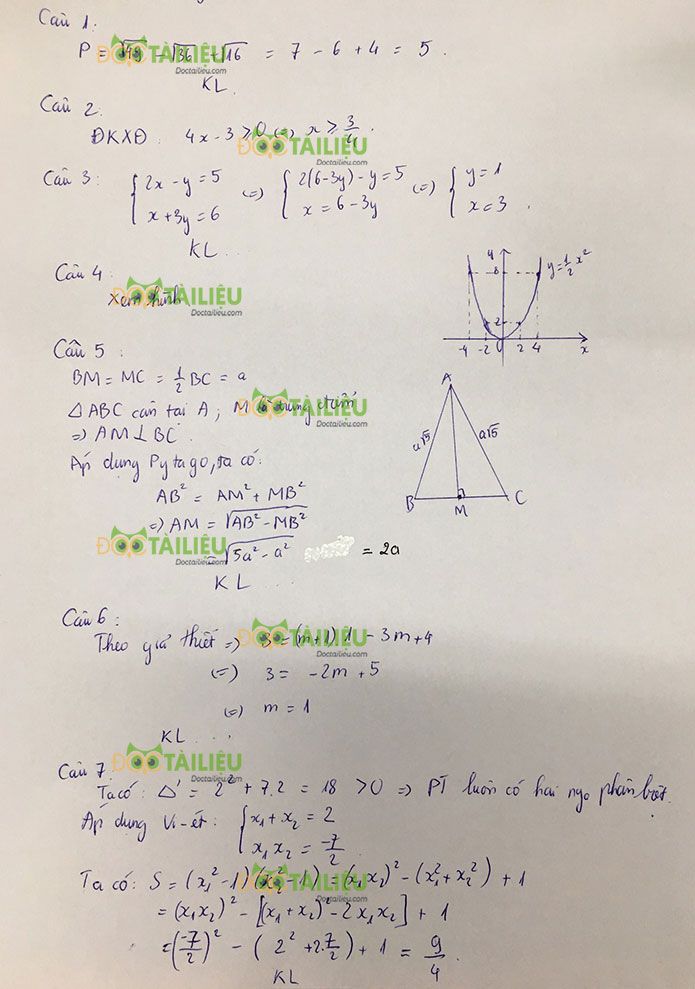 Câu 1.
P = √49 - √36 + √16 = 7 - 6 + 4 = 5.
KL.
Câu 2.
ĐKXĐ. 4x - 3 ≥ 0 (=) x ≥ 3/4.
Câu 3 : { 2x - y = 5 (=) { 2(6-3y) - y = 5 (=) { y = 1
x + 3y = 6 x = 6 - 3y x = 3.
KL...
Câu 4.
Xem hình
y
8
2
-4 -2 0 2 4 x
y = 1/2 x²
Câu 5 :
BM = MC = 1/2 BC = a
Δ ABC cân tại A ; M là trung điểm
=) AM ⊥ BC.
Áp dụng Pytago, ta có:
AB² = AM² + MB²
=) AM = √AB² - MB²
= √5a² - a² = 2a
KL ...
A
a√5 a√5
B M C
Câu 6 :
Theo giả thiết =) 3 = (m+1).1 - 3m + 4
(=) 3 = -2m + 5
(=) m = 1
KL ...
Câu 7.
Ta có : Δ' = 2² + 7.2 = 18 > 0 =) PT luôn có hai ngo phân biệt.
Áp dụng Vi-ét : { x₁ + x₂ = 2
x₁ x₂ = -7/2.
Ta có: S = (x₁² - 1)(x₂² - 1) = (x₁x₂)² - (x₁² + x₂²) + 1
= (x₁x₂)² - [(x₁ + x₂)² - 2x₁x₂] + 1
= (-7/2)² - ( 2² + 2.7/2 ) + 1 = 9/4.
KL
ĐỌCTÀILIỆU
Doctailieu.com